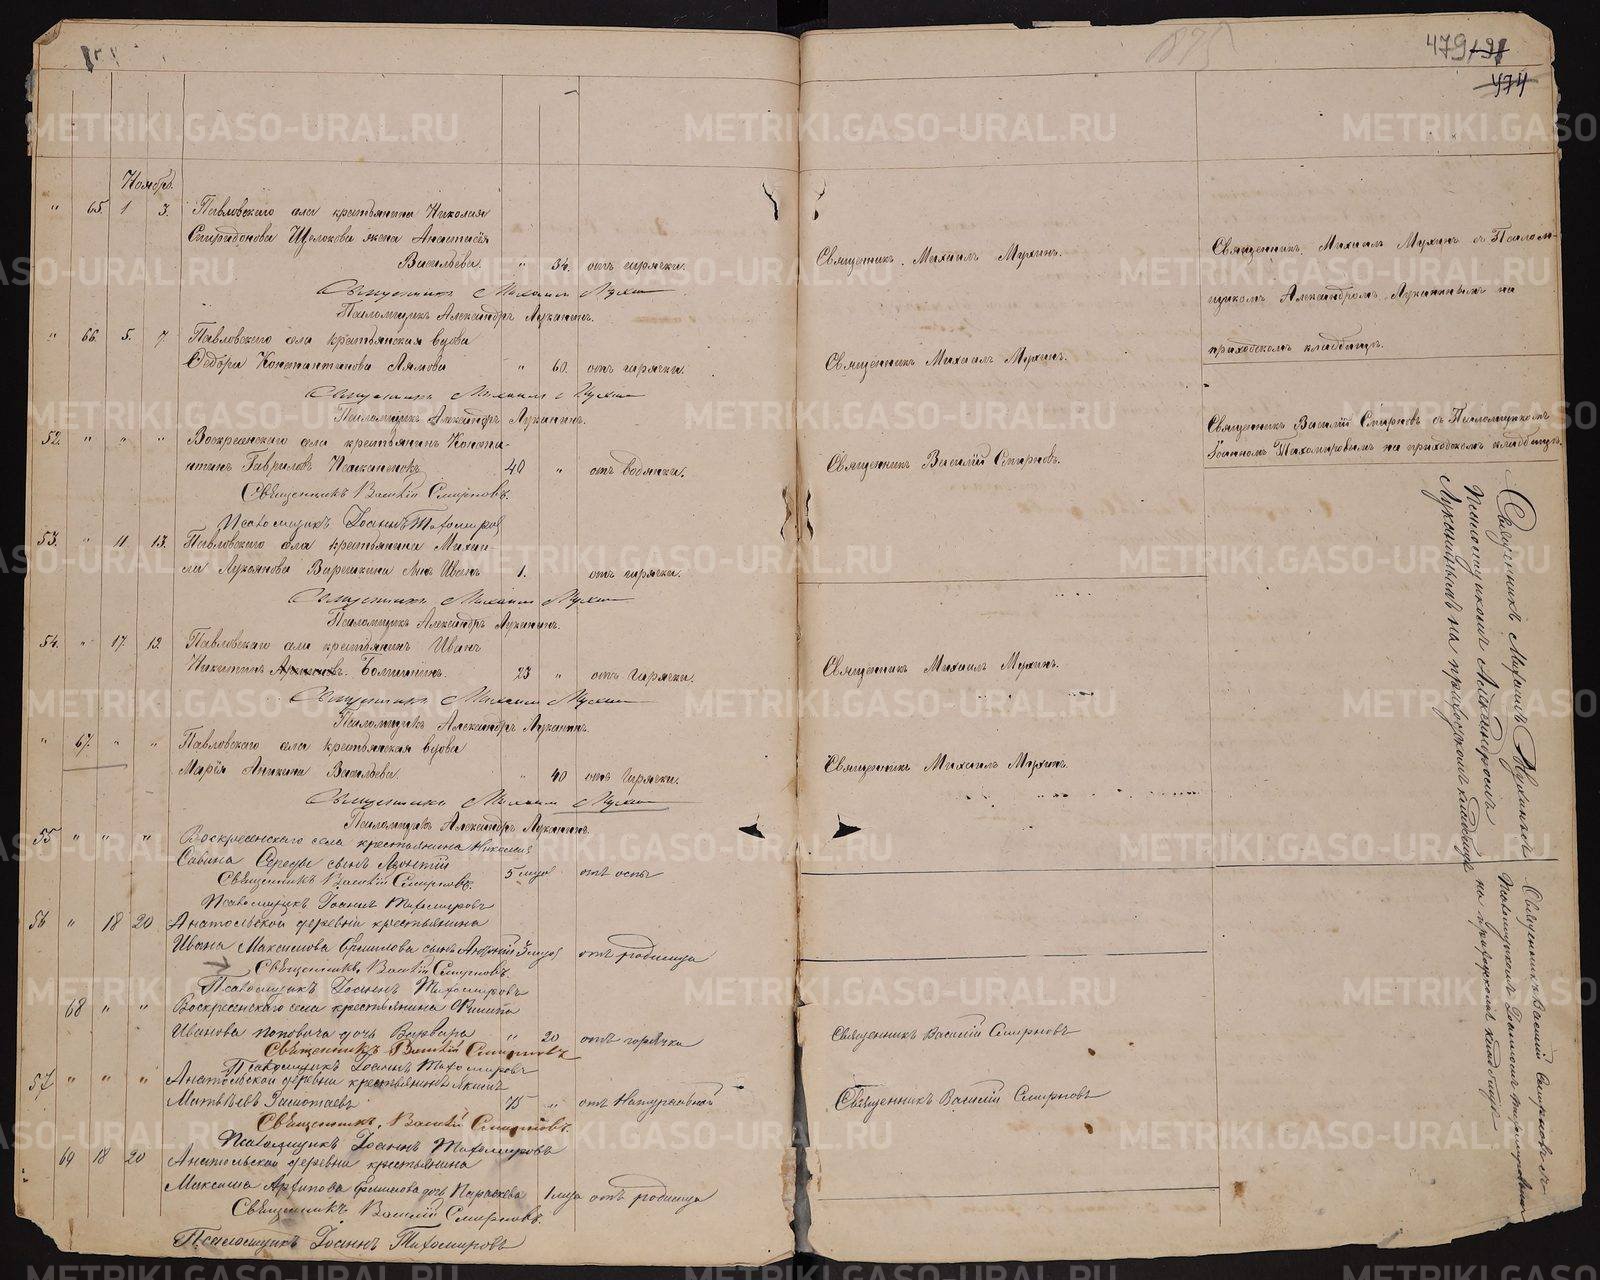 1875
479
474
Ноябрь.
" 65. 1 3. Павловскаго села крестьянина Николая
Спиридонова Щелокова жена Анастасія
Васильева. " 34. отъ горячки.
Священникъ Михаилъ Мухинъ
Псаломщикъ Александръ Луканинъ.
" 66. 5. 7. Павловскаго села крестьянская вдова
Ѳедора Константинова " 60. отъ горячки.
Священникъ Михаилъ Мухинъ
Псаломщикъ Александръ Луканинъ.
52. " " " Воскресенскаго села крестьянинъ Конста-
нтинъ Гавриловъ 40 " отъ водянки.
Священникъ Василій Смирновъ.
Псаломщикъ Іоаннъ Тихомировъ
53. " 11. 13. Павловскаго села крестьянина Михаи-
ла Лукоянова Варенкина сынъ Иванъ 1. отъ горячки.
Священникъ Михаилъ Мухинъ
Псаломщикъ Александръ Луканинъ.
54. " 17. 19. Павловскаго села крестьянинъ Иванъ
Никитинъ 23 " отъ горячки.
Священникъ Михаилъ Мухинъ
Псаломщикъ Александръ Луканинъ.
" 67. " " Павловскаго села крестьянская вдова
Марія Аникина Васильева. " 40 отъ горячки.
Священникъ Михаилъ Мухинъ
Псаломщикъ Александръ Луканинъ.
55 " " " Воскресенскаго села крестьянина Николая
Савина Середы сынъ Леонтій 5 отъ оспы
Священникъ Василій Смирновъ.
Псаломщикъ Іоаннъ Тихомировъ
56 " 18 20 Анатольской деревни крестьянина
Ивана Максимова сынъ Андрей 3 отъ родимца
Священникъ Василій Смирновъ.
Псаломщикъ Іоаннъ Тихомировъ
68 " " Воскресенскаго села крестьянина Филипа
Иванова Поповича дочь Варвара " 20 отъ горячки
Священникъ Василій Смирновъ
Псаломщикъ Іоаннъ Тихомировъ
57 " " " Анатольской деревни крестьянинъ
Матвѣевъ 75 " отъ Натуральной
Священникъ Василій Смирновъ.
Псаломщикъ Іоаннъ Тихомировъ
69 18 20 Анатольской деревни крестьянина
Максима Архипова дочь Параскева 1 отъ родимца
Священникъ Василій Смирновъ.
Псаломщикъ Іоаннъ Тихомировъ
Священникъ Михаилъ Мухинъ.
Священникъ Михаилъ Мухинъ.
Священникъ Василій Смирновъ.
Священникъ Михаилъ Мухинъ.
Священникъ Михаилъ Мухинъ.
Священникъ Василій Смирновъ
Священникъ Василій Смирновъ
Священникъ Михаилъ Мухинъ съ Псалом-
щикомъ Александромъ Луканинымъ на
приходскомъ кладбищѣ.
Священникъ Василій Смирновъ съ Псаломщикомъ
Іоанномъ Тихомировымъ на приходскомъ кладбищѣ.
Священникъ Михаилъ Мухинъ съ
Псаломщикомъ Александромъ
Луканинымъ на приходскомъ кладбищѣ
Священникъ Василій Смирновъ съ
Псаломщикомъ Іоанномъ Тихомировымъ
на приходскомъ кладбищѣ
METRIKI.GASO-URAL.RU